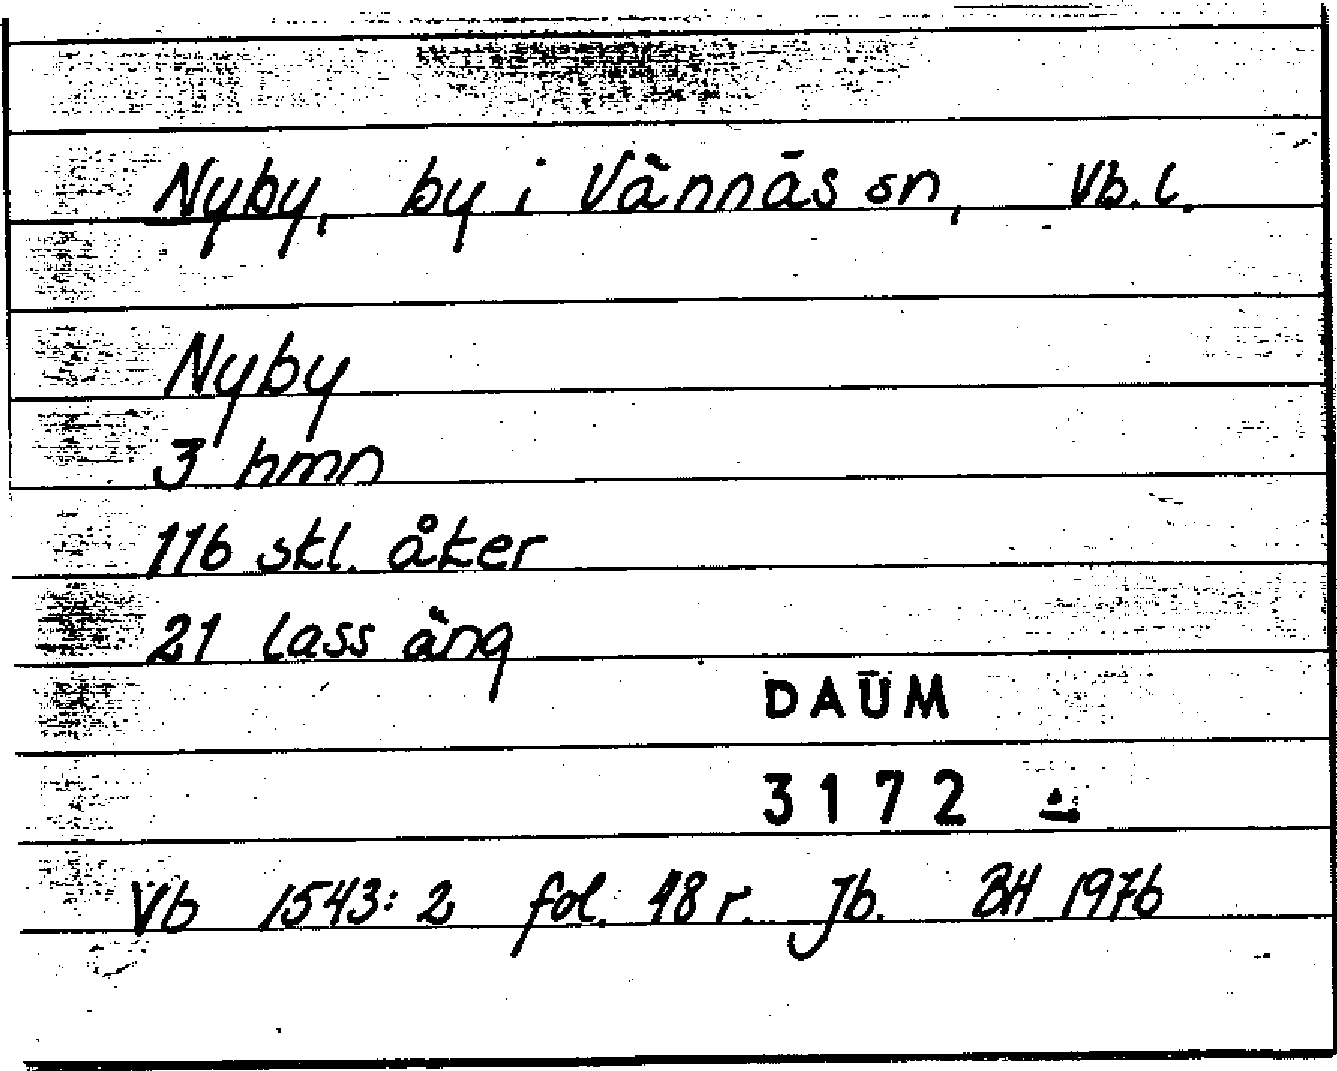 Nyby, by i Vännäs sn, Vb. l.
Nyby
3 hmn
116 skl. åker
21 lass äng
DAUM
3172
Vb 1543: 2 fol. 48 r. Jb. BH 1976